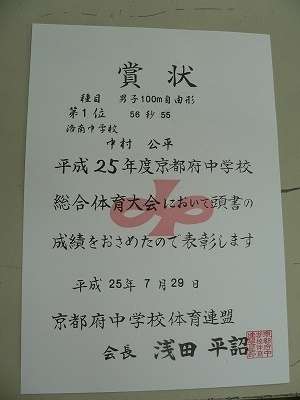 賞状
種目 男子100m自由形
第1位 56秒55
洛南中学校
中村 公平
平成25年度京都府中学校
総合体育大会において頭書の
成績をおさめたので表彰します
平成 25年 7月 29日
京都府中学校体育連盟
会長 浅田 平詔